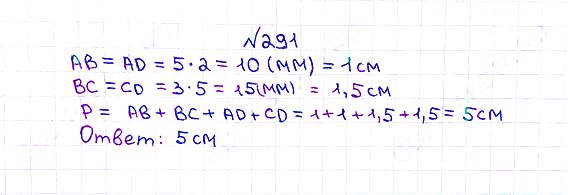 №291
AB = AD = 5·2 = 10 (мм) = 1 см
BC = CD = 3·5 = 15(мм) = 1,5 см
P = AB + BC + AD + CD = 1+1+1,5+1,5 = 5 см
Ответ: 5 см